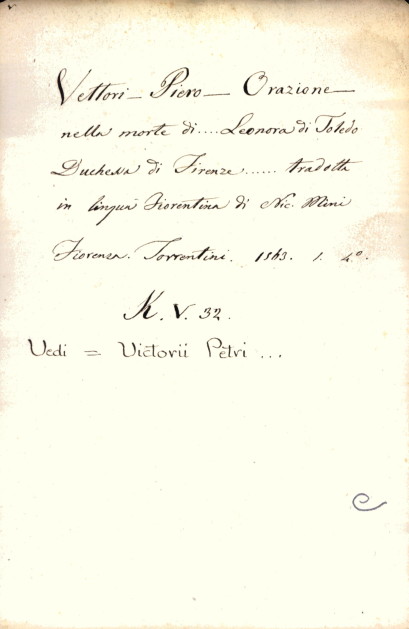 Vettori – Piero – Orazione –
nella morte di .... Leonora di Toledo
Duchessa di Firenze ...... tradotta
in lingua Fiorentina di Nic. Mini
Fiorenza. Torrentini. 1563. 1. 4º.
K. V. 32.
Vedi = Victorii Petri ...